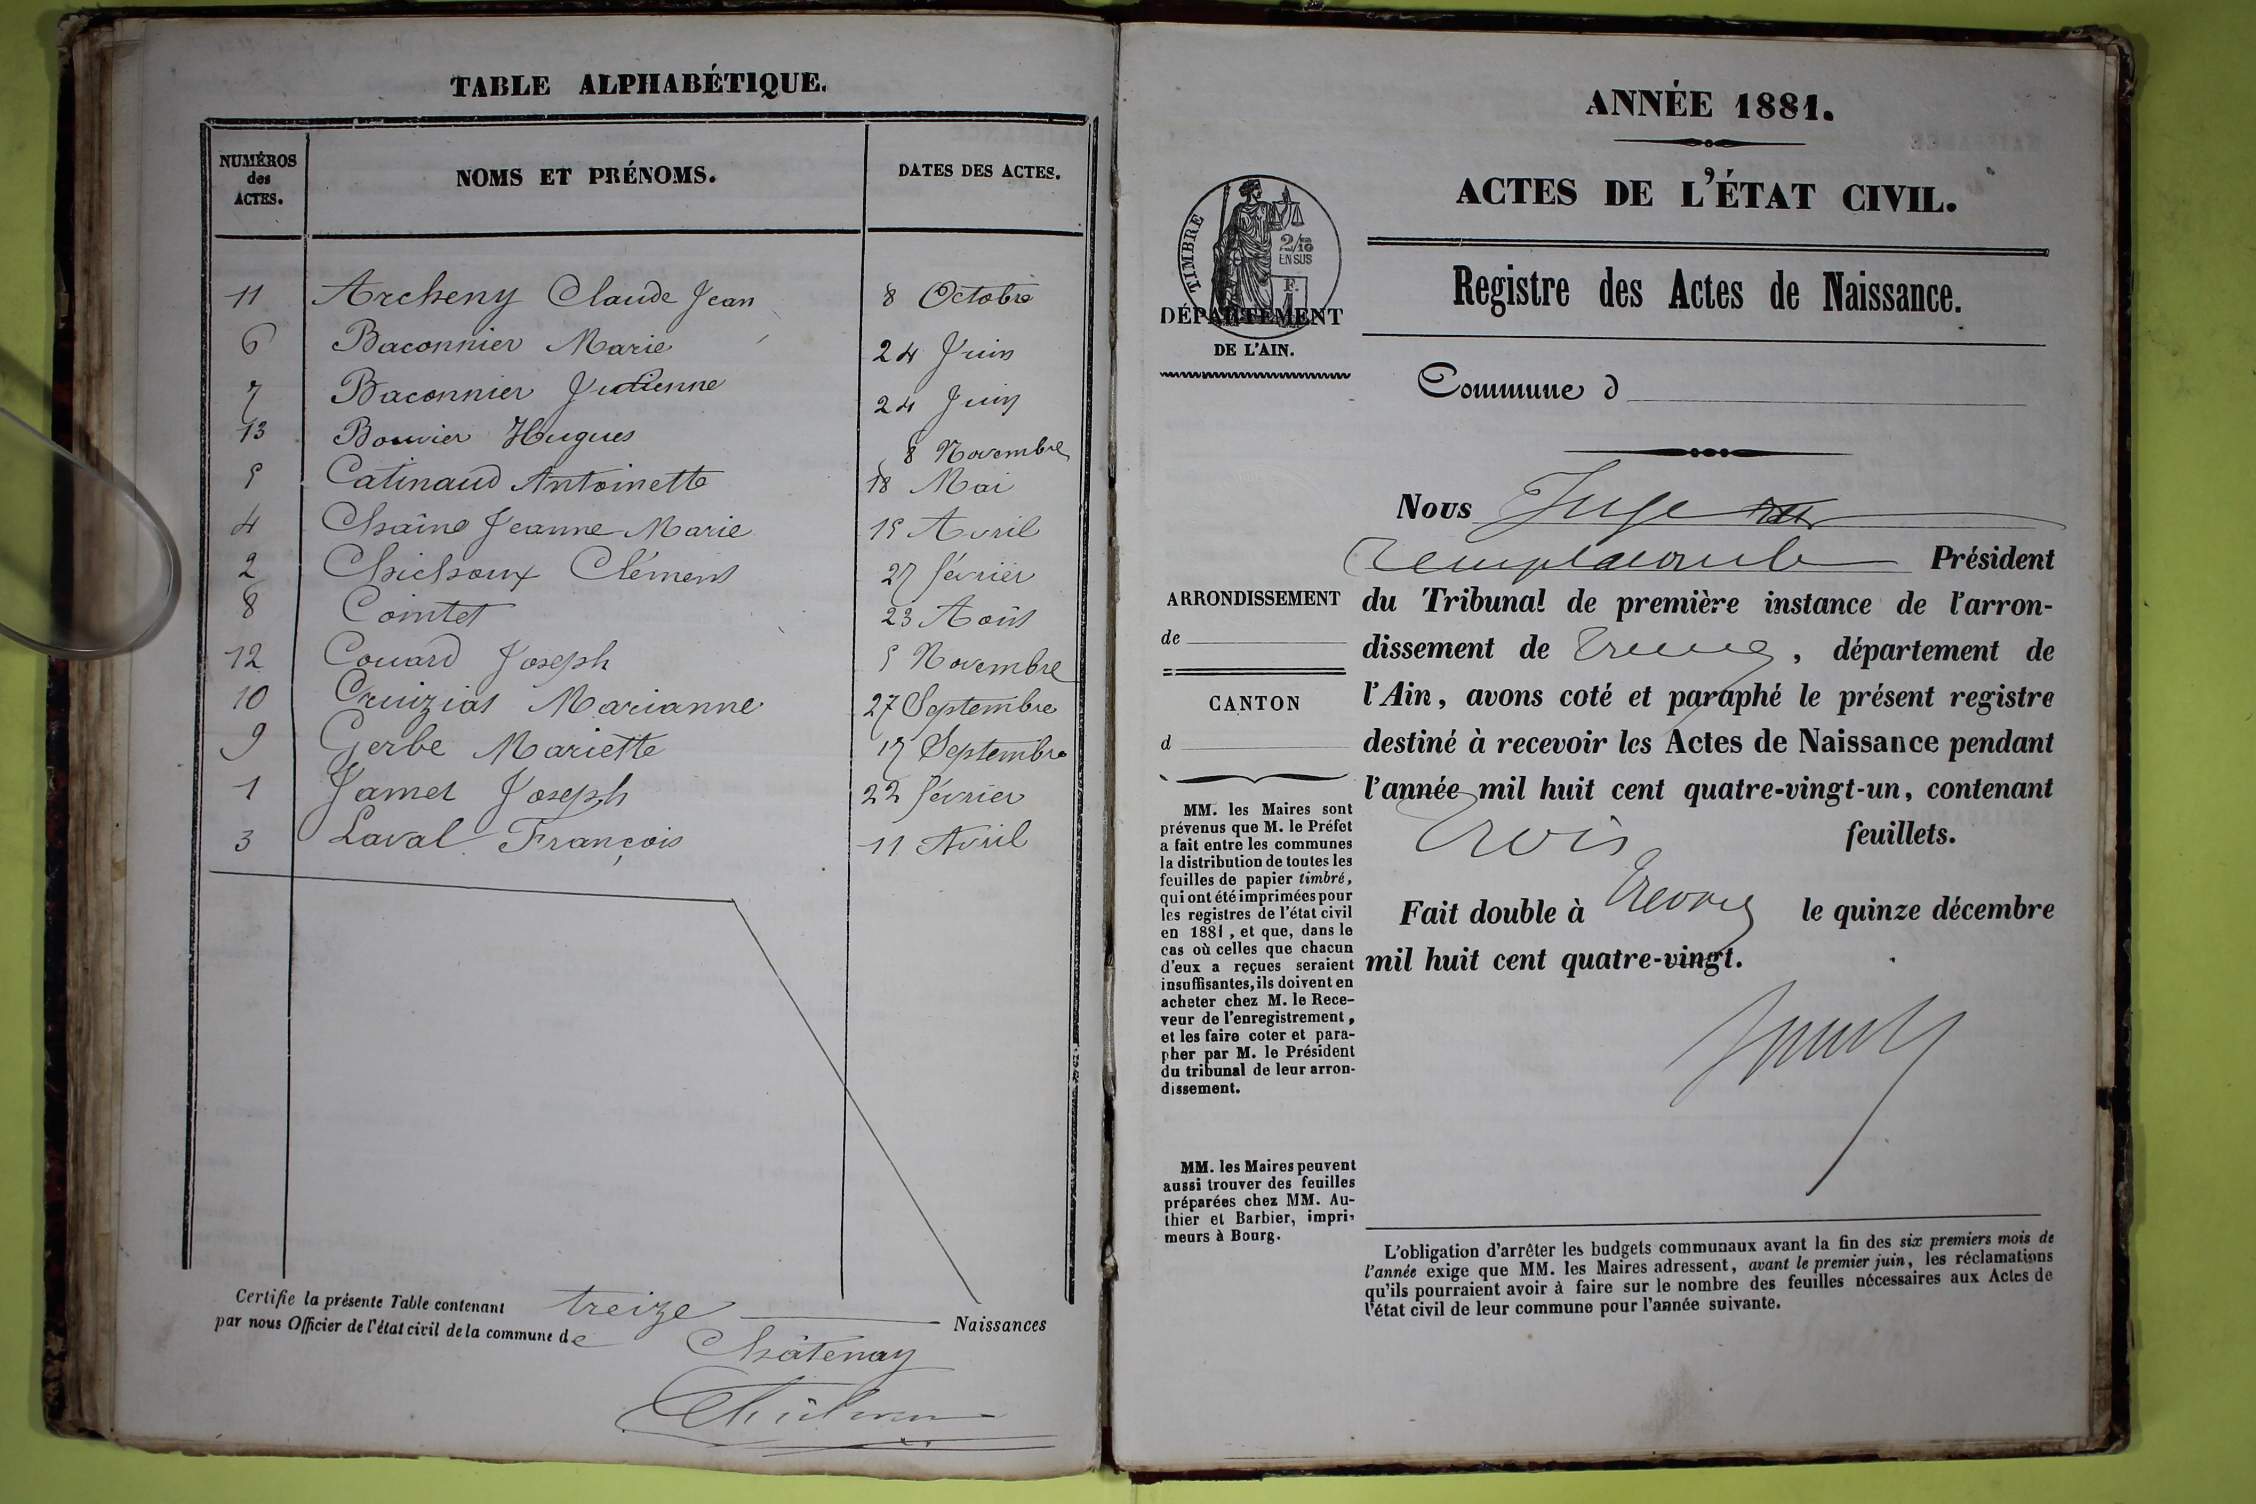 TABLE ALPHABÉTIQUE.
NUMÉROS des ACTES. NOMS ET PRÉNOMS. DATES DES ACTES.
11 Archeny Claude Jean 8 Octobre
6 Baconnier Marie 24 Juin
7 Baconnier Julienne 24 Juin
13 Bouvier Hugues 8 Novembre
5 Catinaud Antoinette 18 Mai
4 Chaîne Jeanne Marie 15 Avril
2 Chichoux Clément 27 février
8 Cointet 23 Août
12 Couard Joseph 5 Novembre
10 Cruizias Marianne 27 Septembre
9 Gerbe Mariette 17 Septembre
1 Jamet Joseph 22 février
3 Laval François 11 Avril
Certifie la présente Table contenant treize Naissances
par nous Officier de l'état civil de la commune de Châtenay
ANNÉE 1881.
ACTES DE L'ÉTAT CIVIL.
Registre des Actes de Naissance.
TIMBRE
2/10
EN SUS
F.
DÉPARTEMENT
DE L'AIN.
Commune d
ARRONDISSEMENT
de
CANTON
d
MM. les Maires sont
prévenus que M. le Préfet
a fait entre les communes
la distribution de toutes les
feuilles de papier timbré,
qui ont été imprimées pour
les registres de l'état civil
en 1881, et que, dans le
cas où celles que chacun
d'eux a reçues seraient
insuffisantes, ils doivent en
acheter chez M. le Rece-
veur de l'enregistrement,
et les faire coter et para-
pher par M. le Président
du tribunal de leur arron-
dissement.
MM. les Maires peuvent
aussi trouver des feuilles
préparées chez MM. Au-
thier et Barbier, impri-
meurs à Bourg.
Nous Juge
remplaçant le Président
du Tribunal de première instance de l'arron-
dissement de Trévoux, département de
l'Ain, avons coté et paraphé le présent registre
destiné à recevoir les Actes de Naissance pendant
l'année mil huit cent quatre-vingt-un, contenant
trois feuillets.
Fait double à Trévoux le quinze décembre
mil huit cent quatre-vingt.
L'obligation d'arrêter les budgets communaux avant la fin des six premiers mois de
l'année exige que MM. les Maires adressent, avant le premier juin, les réclamations
qu'ils pourraient avoir à faire sur le nombre des feuilles nécessaires aux Actes de
l'état civil de leur commune pour l'année suivante.